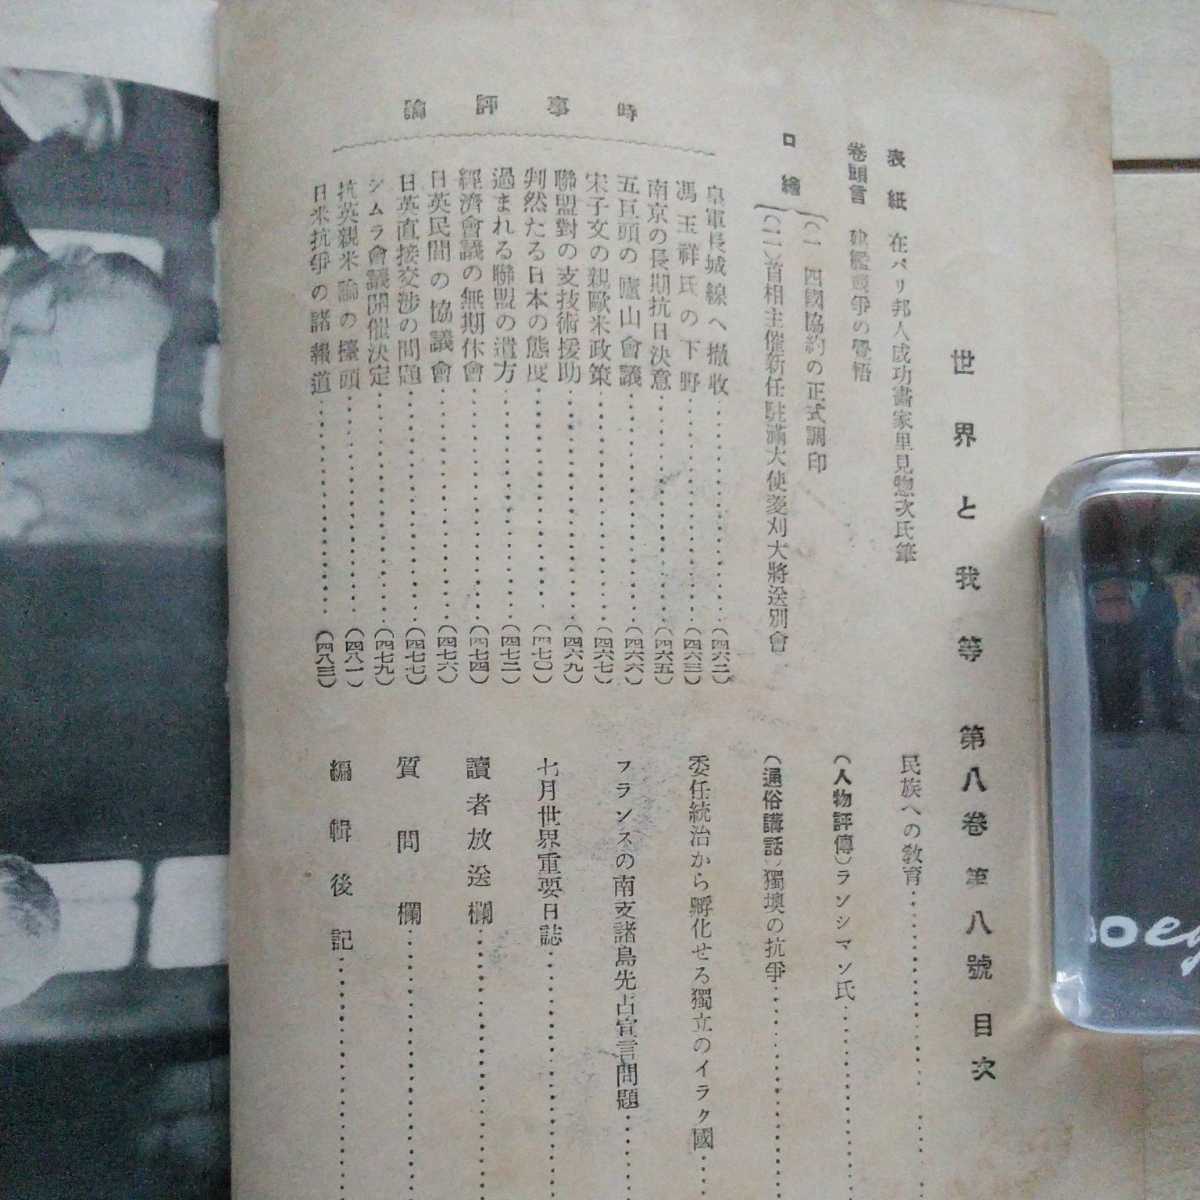 世界と我等 第八卷 第八號 目次
表紙 在パリ邦人成功畵家里見惣次氏筆
卷頭言 建艦競爭の覺悟
口繪
(一) 四國協約の正式調印
(二) 首相主催新任駐滿大使菱刈大將送別會
時事評論
皇軍長城線へ撤收………(四六二)
馮玉祥氏の下野………(四六三)
南京の長期抗日決意………(四六五)
五巨頭の廬山會議………(四六六)
宋子文の親歐米政策………(四六七)
聯盟對の支技術援助………(四六九)
判然たる日本の態度………(四七〇)
過まれる聯盟の遣方………(四七二)
經濟會議の無期休會………(四七四)
日英民間の協議會………(四七六)
日英直接交渉の問題………(四七七)
シムラ會議開催決定………(四七九)
抗英親米論の擡頭………(四八一)
日米抗爭の諸報道………(四八三)
民族への敎育………
(人物評傳) ランシマン氏………
(通俗講話) 獨墺の抗爭………
委任統治から孵化せる獨立のイラク國………
フランスの南支諸島先占宣言問題………
七月世界重要日誌………
讀者放送欄………
質問欄………
編輯後記………